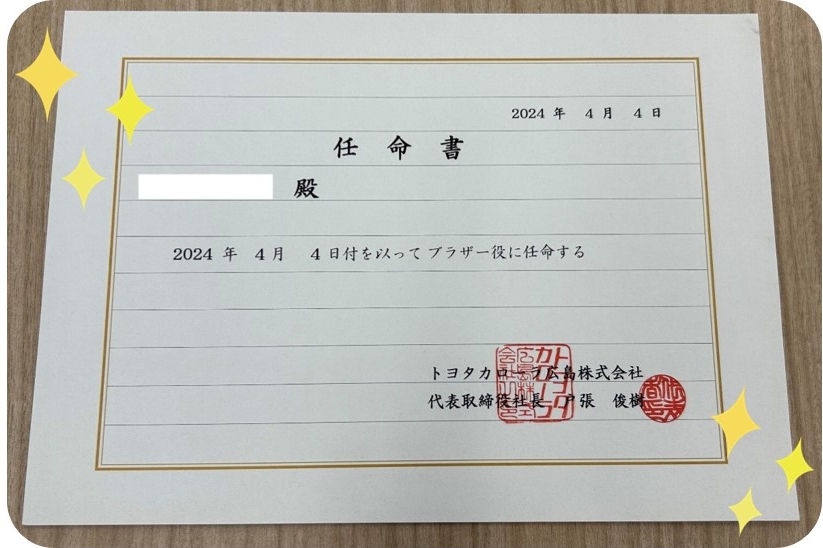 2024 年 4 月 4 日
任 命 書
殿
2024 年 4 月 4 日付を以って ブラザー役に任命する
トヨタカローラ広島株式会社
代表取締役社長 戸張 俊樹